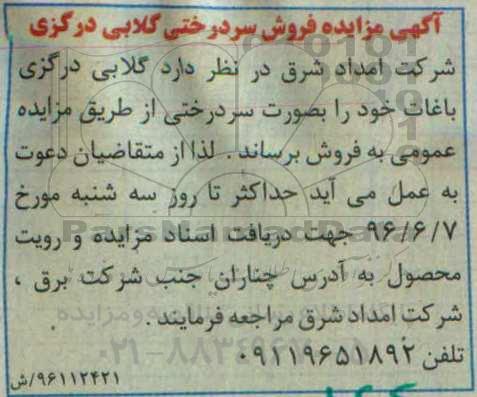 آگهی مزایده فروش سردرختی گلابی درگزی
شرکت امداد شرق در نظر دارد گلابی درگزی
باغات خود را بصورت سردرختی از طریق مزایده
عمومی به فروش برساند . لذا از متقاضیان دعوت
به عمل می آید حداکثر تا روز سه شنبه مورخ
۹۶/۶/۷ جهت دریافت اسناد مزایده و رویت
محصول به آدرس چناران جنب شرکت برق ،
شرکت امداد شرق مراجعه فرمایند .
تلفن ۰۹۱۱۹۶۵۱۸۹۲
۹۶۱۱۲۴۲۱/ش